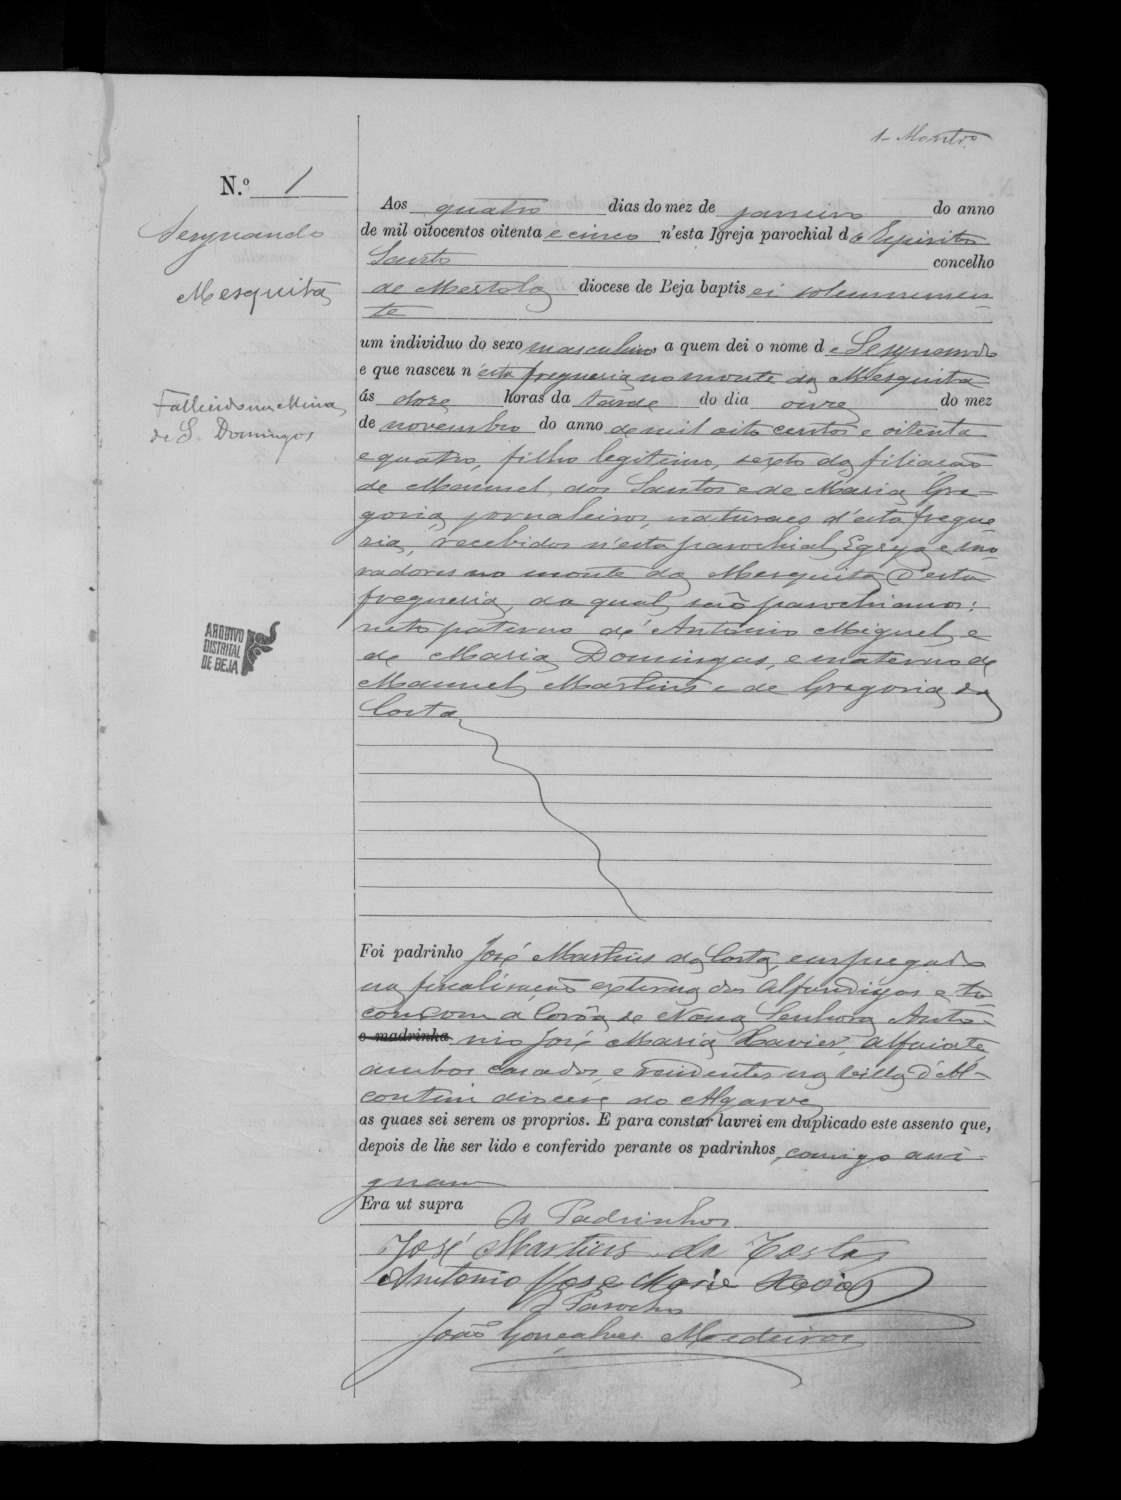 1- Monteiro
N.º 1
Aos quatro dias do mez de janeiro do anno
Sesynando
de mil oitocentos oitenta e cinco n'esta Igreja parochial do Espirito
Santo concelho
Mesquita
de Mertola diocese de Beja baptisei solemnemen-
te
um individuo do sexo masculino a quem dei o nome de Sesynando
e que nasceu n'esta freguesia no monte da Mesquita
Fallecido na Mina
de S. Domingos
ás doze horas da tarde do dia onze do mez
de novembro do anno de mil oito centos e oitenta
e quatro, filho legitimo, sexto da filiação
de Manuel dos Santos e de Maria Gre-
goria, jornaleiros, naturaes d'esta fregue-
sia, recebidos n'esta parochial Egreja e mo-
radores no monte da Mesquita d'esta
freguesia, da qual são parochianos:
neto paterno de Antonio Miguel e
de Maria Domingas, e materno de
Manuel Martins e de Gregoria da
Costa
ARQUIVO
DISTRITAL
DE BEJA
Foi padrinho José Martins da Costa, empregado
na fiscalisação externa das Alfandegas e to-
cou com a Corôa de Nossa Senhora Anto-
e madrinha nio José Maria Xavier, alfaiate,
ambos casados, e residentes na villa d'Al-
coutim diocese do Algarve
as quaes sei serem os proprios. E para constar lavrei em duplicado este assento que,
depois de lhe ser lido e conferido perante os padrinhos, comigo assi-
gnam
Era ut supra
Os Padrinhos
José Martins da Costa
Antonio Jose Maria Xavier
O Parocho
João Gonçalves Medeiros